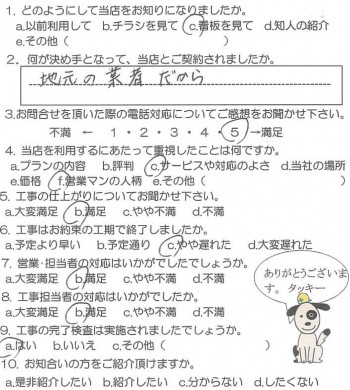 1. どのようにして当店をお知りになりましたか。
a.以前利用して b.チラシを見て c.看板を見て d.知人の紹介
e.その他( )
2. 何が決め手となって、当店とご契約されましたか。
地元の業者だから
3.お問合せを頂いた際の電話対応についてご感想をお聞かせ下さい。
不満 ← 1・2・3・4・5 →満足
4. 当店を利用するにあたって重視したことは何ですか。
a.プランの内容 b.評判 c.サービスや対応のよさ d.当社の場所
e.価格 f.営業マンの人柄 e.その他( )
5. 工事の仕上がりについてお聞かせ下さい。
a.大変満足 b.満足 c.やや不満 d.不満
6. 工事はお約束の工期で終了しましたか。
a.予定より早い b.予定通り c.やや遅れた d.大変遅れた
7. 営業・担当者の対応はいかがでしたでしょうか。
a.大変満足 b.満足 c.やや不満 d.不満
8. 工事担当者の対応はいかがでしたか。
a.大変満足 b.満足 c.やや不満 d.不満
9. 工事の完了検査は実施されましたでしょうか。
a.はい b.いいえ c.その他( )
10. お知合いの方をご紹介頂けますか。
a.是非紹介したい b.紹介したい c.分からない d.したくない
ありがとうございま
す。 タッキー